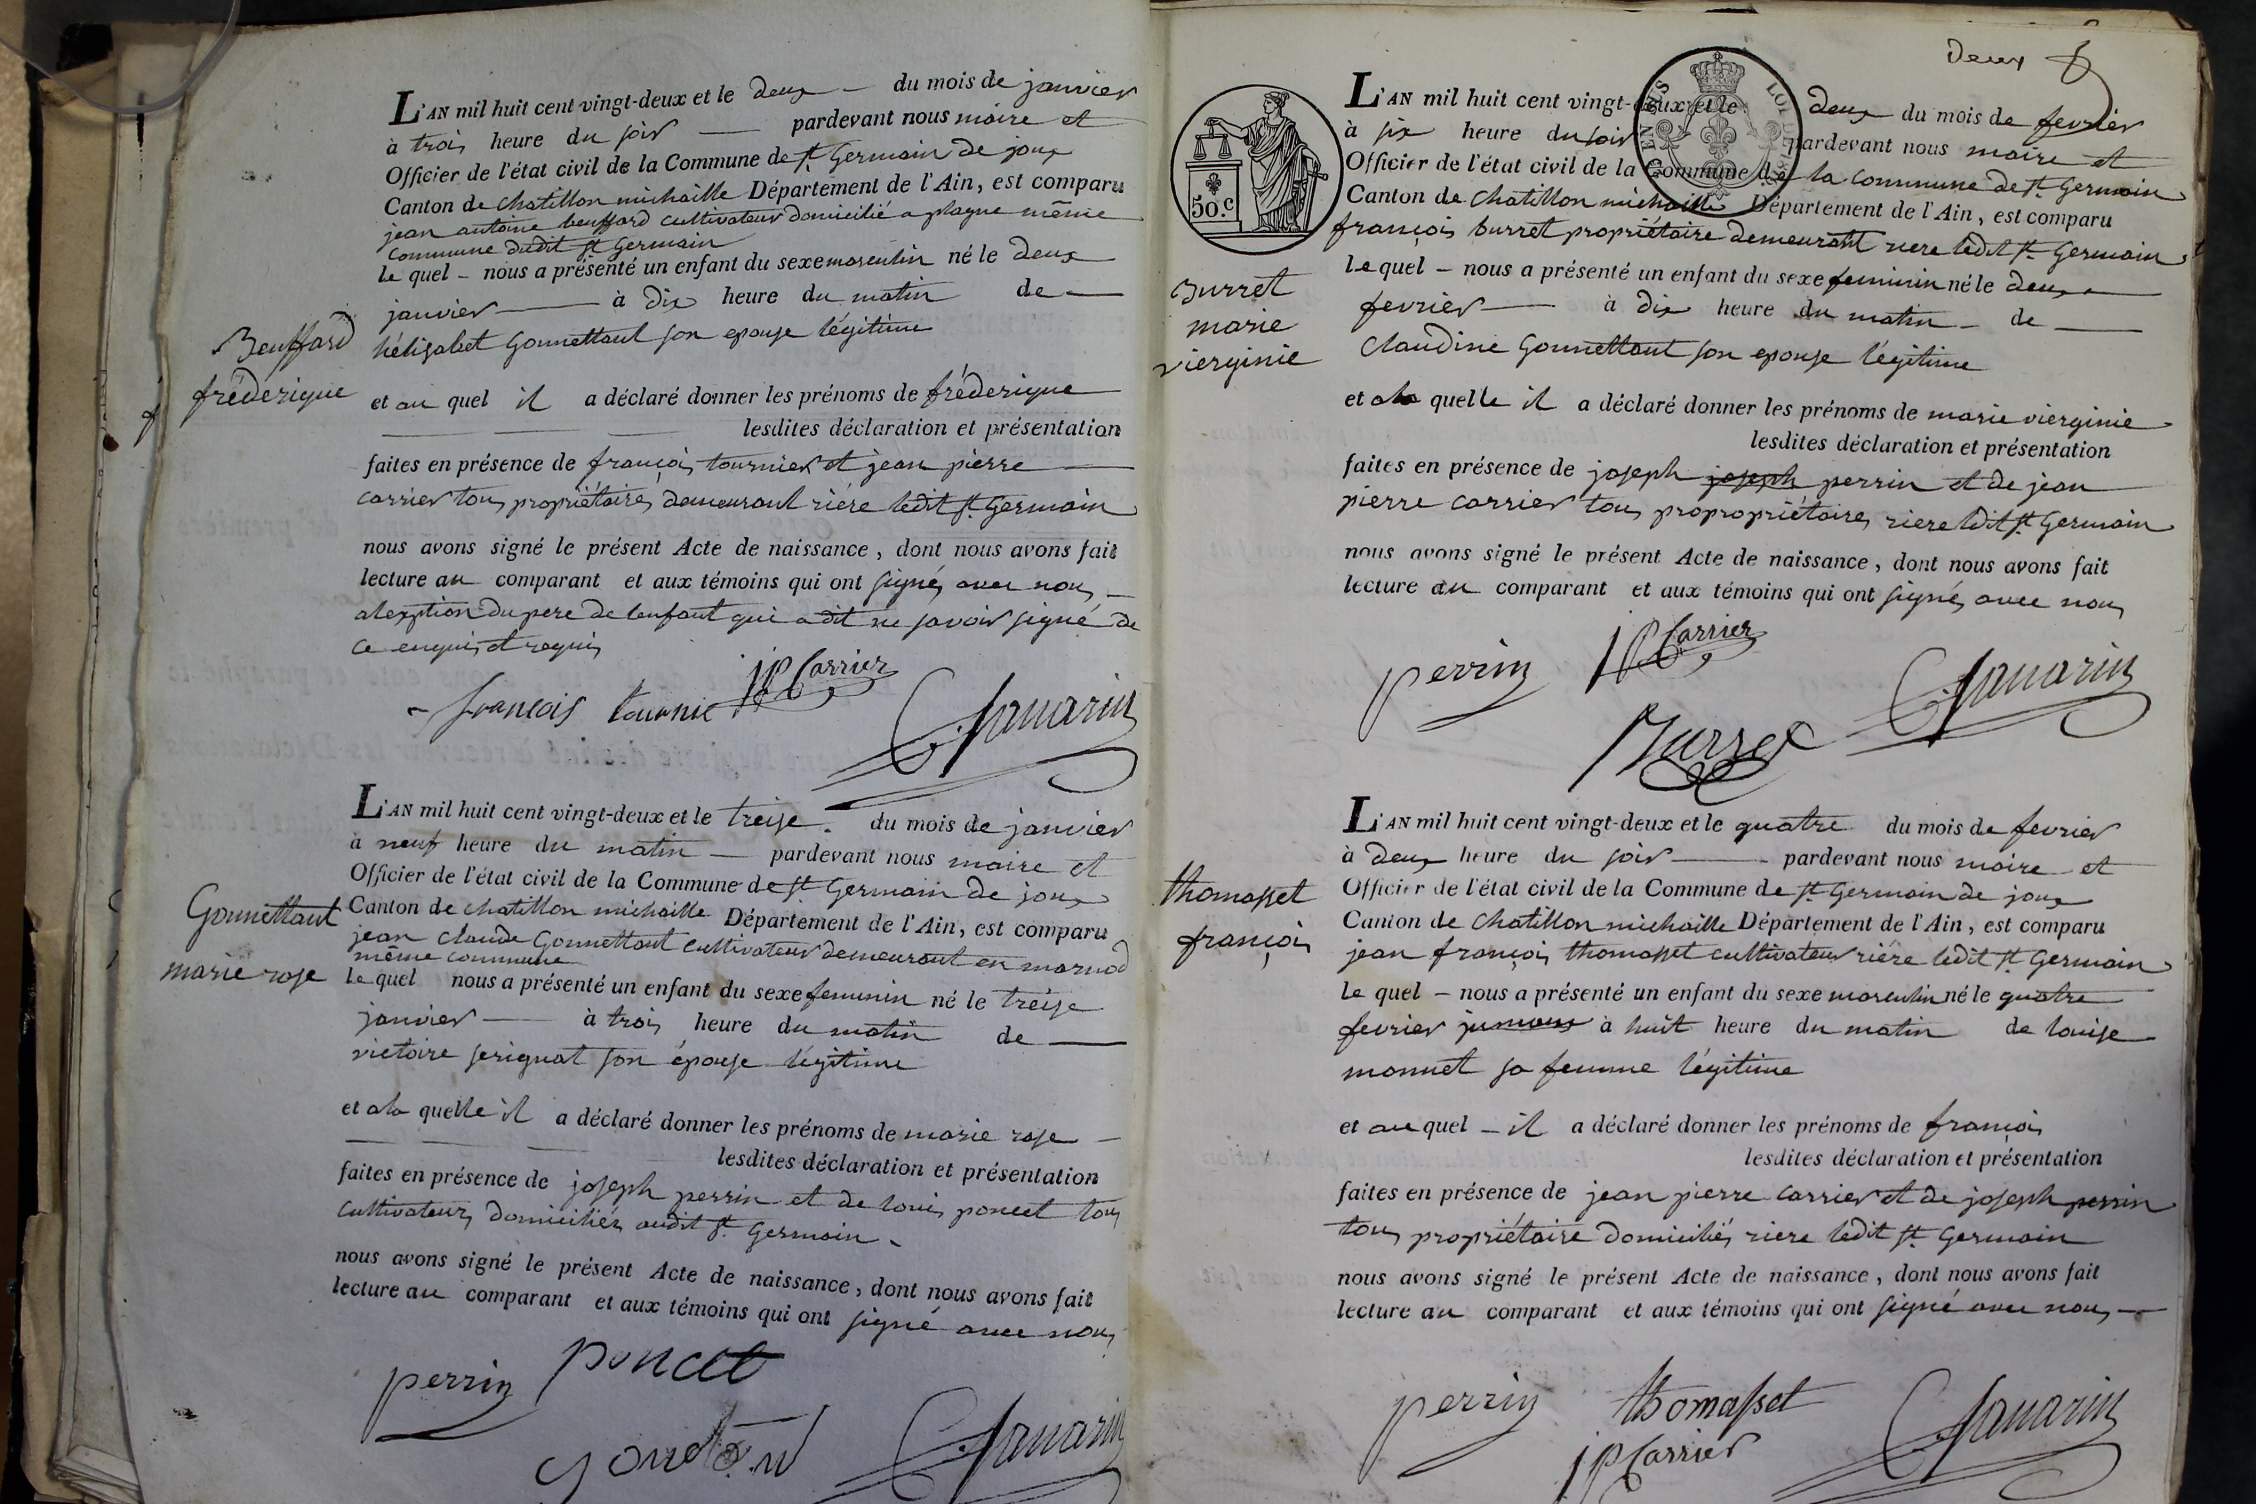 L'AN mil huit cent vingt-deux et le deux du mois de janvier
à trois heure du soir pardevant nous maire et
Officier de l'état civil de la Commune de st Germain de joux
Canton de chatillon michaille Département de l'Ain, est comparu
jean antoine beuffard cultivateur domicilié a plagne même
commune dudit st Germain
le quel nous a présenté un enfant du sexe masculin né le deux
janvier à dix heure du matin de
hélizabet Gonnettant son epouse légitime
Beuffard
fréderique
et au quel il a déclaré donner les prénoms de fréderique
lesdites déclaration et présentation
faites en présence de françois tournier et jean pierre
carrier tous propriétaires demeurant riére ledit st Germain
nous avons signé le présent Acte de naissance, dont nous avons fait
lecture au comparant et aux témoins qui ont signés avec nous
alexption du pere de lenfant qui a dit ne savoir signé de
ce enquis et requis
JP Carrier
françois tournie
Savarin
L'AN mil huit cent vingt-deux et le treise du mois de janvier
à neuf heure du matin pardevant nous maire et
Officier de l'état civil de la Commune de st Germain de joux
Gonnettant
marie rose
Canton de chatillon michaille Département de l'Ain, est comparu
jean claude Gonnettant cultivateur demeurant en marnod
même commune
le quel nous a présenté un enfant du sexe feminin né le treise
janvier à trois heure du matin de
victoire serignat son épouse légitime
et a la quelle il a déclaré donner les prénoms de marie rose
lesdites déclaration et présentation
faites en présence de joseph perrin et de louis poncet tous
cultivateurs domiciliés audit st Germain
nous avons signé le présent Acte de naissance, dont nous avons fait
lecture au comparant et aux témoins qui ont signé avec nous
perrin poncet
Savarin
deux
50.c
L'AN mil huit cent vingt-deux et le deux du mois de fevrier
à six heure du soir pardevant nous maire et
Officier de l'état civil de la Commune de la commune de st Germain
Canton de chatillon michaille Département de l'Ain, est comparu
françois burret propriétaire demeurant riere ledit st Germain
burret
marie
vierginie
le quel nous a présenté un enfant du sexe feminin né le deux
fevrier à dix heure du matin de
claudine Gonnettant son epouse légitime
et a la quelle il a déclaré donner les prénoms de marie vierginie
lesdites déclaration et présentation
faites en présence de joseph joseph perrin et de jean
pierre carrier tous propropriétaires riere ledit st Germain
nous avons signé le présent Acte de naissance, dont nous avons fait
lecture au comparant et aux témoins qui ont signés avec nous
perrin JP Carrier
Savarin
Burret
L'AN mil huit cent vingt-deux et le quatre du mois de fevrier
à deux heure du soir pardevant nous maire et
thomasset
françois
Officier de l'état civil de la Commune de st Germain de joux
Canton de chatillon michaille Département de l'Ain, est comparu
jean françois thomasset cultivateur riére ledit st Germain
le quel nous a présenté un enfant du sexe masculin né le quatre
fevrier à huit heure du matin de louise
monnet sa femme légitime
et au quel il a déclaré donner les prénoms de françois
lesdites déclaration et présentation
faites en présence de jean pierre carrier et de joseph perrin
tous propriétaire domiciliés riere ledit st Germain
nous avons signé le présent Acte de naissance, dont nous avons fait
lecture au comparant et aux témoins qui ont signé avec nous
perrin thomasset
JP Carrier
Savarin